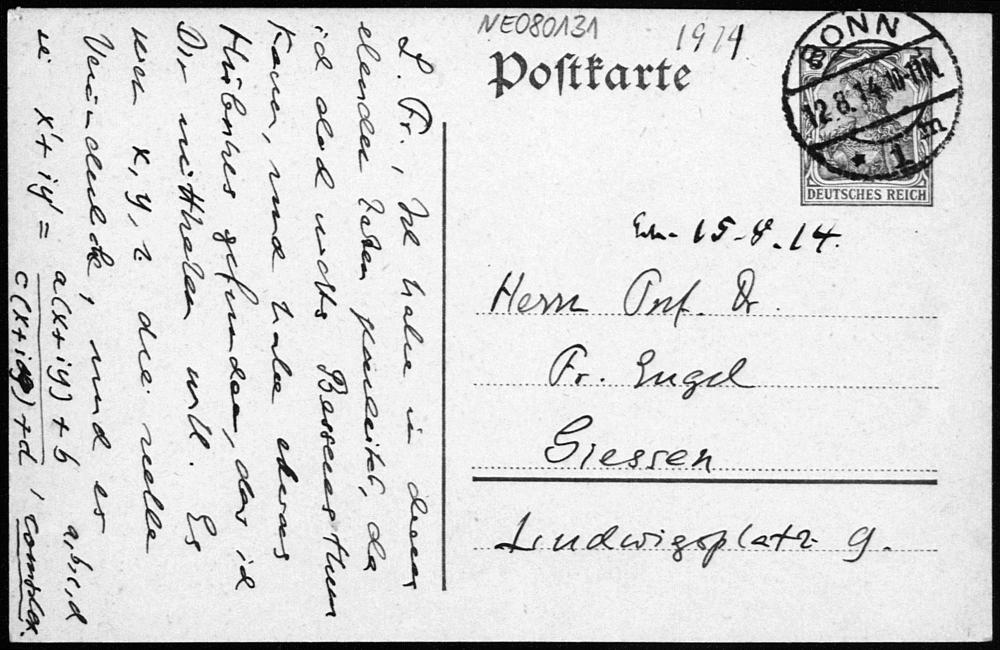 NE080131
1914
Postkarte
BONN
12.8.14. 10-11N
* 1 m
DEUTSCHES REICH
15-8.14.
Herrn Prof. Dr.
Fr. Engel
Giessen
Ludwigsplatz 9.
L. Fr., Ich habe in dieser
elenden Zeiten gearbeitet, da
ich doch nichts Besseres thun
kann, und habe etwas
Hübsches gefunden, das ich
Dir mittheilen will. Es
seien x, y, z die reelle
Veränderliche, und es
sei x' + iy' = a(x+iy) + b / c(x+iy) + d , a, b, c, d complex.